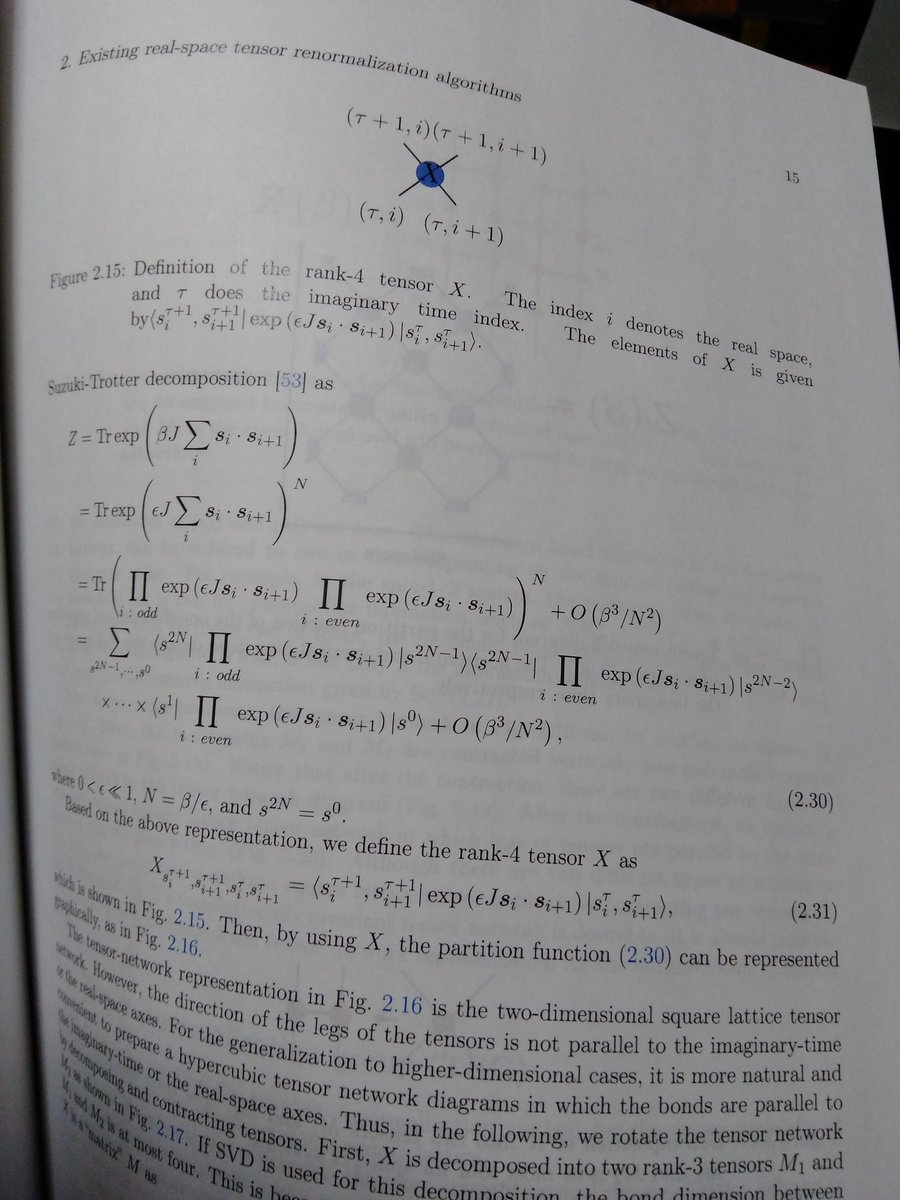 2. Existing real-space tensor renormalization algorithms
15
(τ + 1, i)(τ + 1, i + 1)
X
(τ, i) (τ, i + 1)
Figure 2.15: Definition of the rank-4 tensor X. The index i denotes the real space,
and τ does the imaginary time index. The elements of X is given
by⟨s_i^{τ+1}, s_{i+1}^{τ+1}| exp (ϵJs_i · s_{i+1}) |s_i^τ, s_{i+1}^τ⟩.
Suzuki-Trotter decomposition [53] as
Z = Tr exp (βJ ∑_i s_i · s_{i+1})
= Tr exp (ϵJ ∑_i s_i · s_{i+1})^N
= Tr (∏_{i : odd} exp (ϵJs_i · s_{i+1}) ∏_{i : even} exp (ϵJs_i · s_{i+1}))^N + O (β^3/N^2)
= ∑_{s^{2N−1},...,s^0} ⟨s^{2N}| ∏_{i : odd} exp (ϵJs_i · s_{i+1}) |s^{2N−1}⟩⟨s^{2N−1}| ∏_{i : even} exp (ϵJs_i · s_{i+1}) |s^{2N−2}⟩
× · · · × ⟨s^1| ∏_{i : even} exp (ϵJs_i · s_{i+1}) |s^0⟩ + O (β^3/N^2) ,
(2.30)
where 0 < ϵ ≪ 1, N = β/ϵ, and s^{2N} = s^0.
Based on the above representation, we define the rank-4 tensor X as
X_{s_i^{τ+1},s_{i+1}^{τ+1},s_i^τ,s_{i+1}^τ} = ⟨s_i^{τ+1}, s_{i+1}^{τ+1}| exp (ϵJs_i · s_{i+1}) |s_i^τ, s_{i+1}^τ⟩, (2.31)
which is shown in Fig. 2.15. Then, by using X, the partition function (2.30) can be represented
graphically, as in Fig. 2.16.
The tensor-network representation in Fig. 2.16 is the two-dimensional square lattice tensor
network. However, the direction of the legs of the tensors is not parallel to the imaginary-time
or the real-space axes. For the generalization to higher-dimensional cases, it is more natural and
convenient to prepare a hypercubic tensor network diagrams in which the bonds are parallel to
the imaginary-time or the real-space axes. Thus, in the following, we rotate the tensor network
by decomposing and contracting tensors. First, X is decomposed into two rank-3 tensors M_1 and
M_2 as shown in Fig. 2.17. If SVD is used for this decomposition, the bond dimension between
M_1 and M_2 is at most four. This is
X is a "matrix" M as